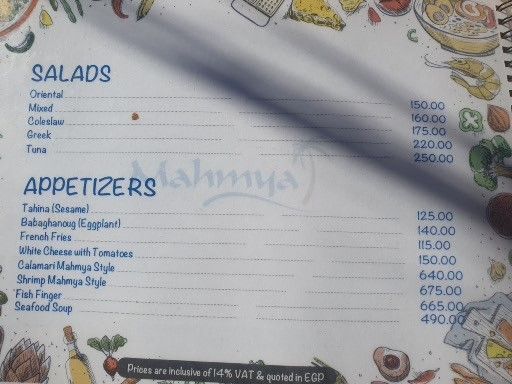 SALADS
Oriental 150.00
Mixed 160.00
Coleslaw 175.00
Greek 220.00
Tuna 250.00
Mahmya
APPETIZERS
Tahina (Sesame) 125.00
Babaghanoug (Eggplant) 140.00
French Fries 115.00
White Cheese with Tomatoes 150.00
Calamari Mahmya Style 640.00
Shrimp Mahmya Style 675.00
Fish Finger 665.00
Seafood Soup 490.00
Prices are inclusive of 14% VAT & quoted in EGP